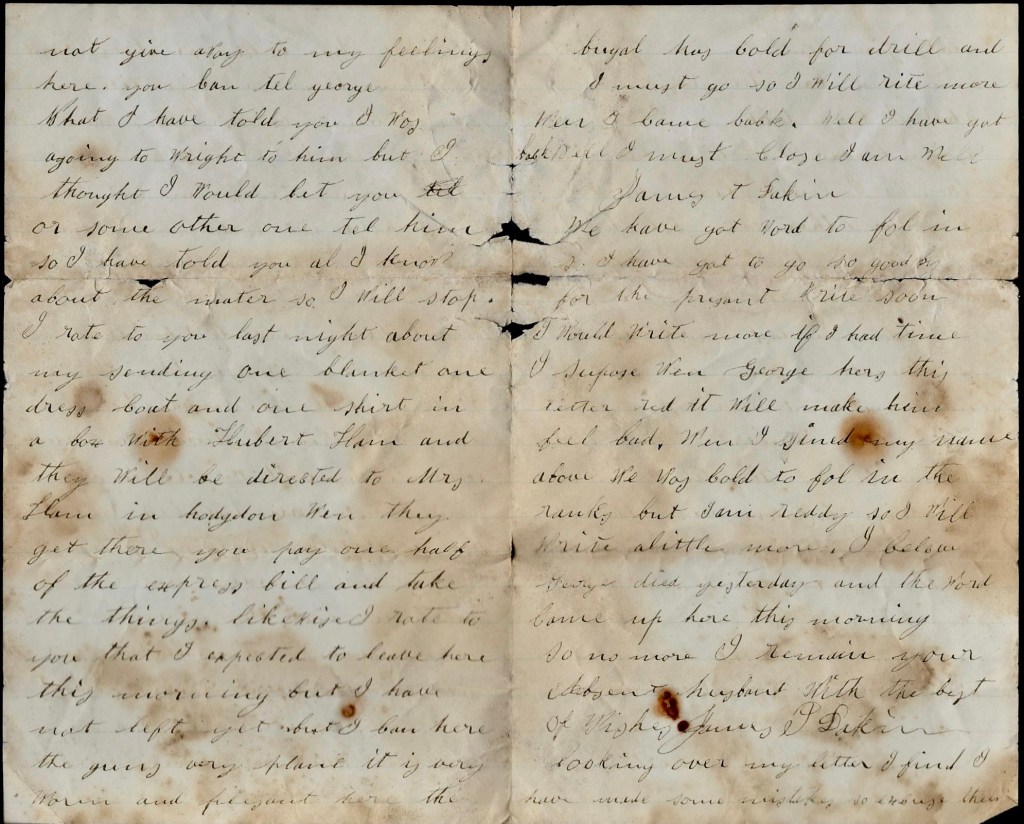 not give away to my feelings
here. you can tel george
What I have told you I Was
agoing to Wright to him but I
thought I Would let you tel
or some other one tel him
so I have told you al I know
about the mater so I Will stop.
I rate to you last night about
my sending one blanket one
dress Coat and one shirt in
a box With Hubert Ham and
they Will be directed to Mrs
Ham in hodgdon Wen they
get there you pay one half
of the express bill and take
the things. likewise I rate to
you that I expected to leave here
this morning but I have
not left yet but I can here
the guns very plane it is very
Worm and plesant here the
bugal has Cold for drill and
I must go so I Will rite more
Wen I Came back. Well I have got
back Well I must Close I am Well
James t Dakin
We have got Word to fol in
so I have got to go so good by
for the presant Write soon
I Would Write more if I had time
I supose Wen George hers this
letter red it Will make him
feel bad. Wen I sined my name
above We Was Cold to fol in the
ranks but I am reddy so I Will
Write alittle more. I beleve
George died yesterday and the Word
Came up here this morning
so no more I remain your
absent husband With the best
of Wishes James T Dakin
looking over my letter I find I
have made some mistakes so excuse them